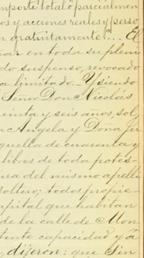 importe total ó parcialmen
os y acciones reales y perso
n gratuitamente"... El
ar en todo su pleni
do suspenso, revocado
a limitado. Y siendo
Señor Don Nicolás
enta y seis años, sol
a Angela y Dona
quella de cuarenta y
libres de toda potes
nea del mismo apelli
soltero; todos propie
apital que habitan
de la calle de Mon
tente capacidad y a
a, dijeron: que Sin